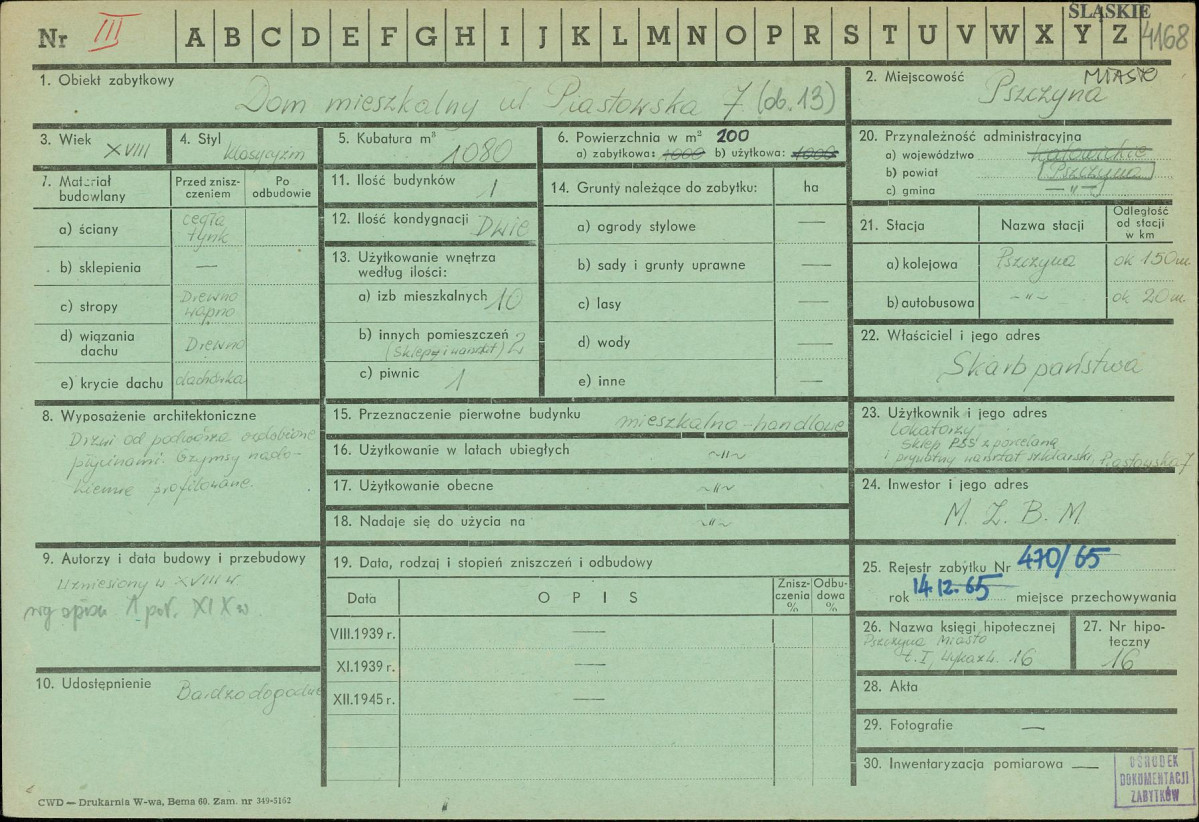 ŚLĄSKIE
Nr III A B C D E F G H I J K L M N O P R S T U V W X Y Z 4168
1. Obiekt zabytkowy
Dom mieszkalny ul Piastowska 7 (ob. 13)
2. Miejscowość
MIASTO
Pszczyna
3. Wiek XVIII
4. Styl klasycyzm
5. Kubatura m³
1080
6. Powierzchnia w m² 200
a) zabytkowa: 1000 b) użytkowa: 1000
20. Przynależność administracyjna
a) województwo Katowickie
b) powiat Pszczyna
c) gmina —"—
7. Materiał budowlany
Przed zniszczeniem
Po odbudowie
a) ściany cegła tynk
b) sklepienia —
c) stropy Drewno wapno
d) wiązania dachu Drewno
e) krycie dachu dachówka
11. Ilość budynków 1
12. Ilość kondygnacji Dwie
13. Użytkowanie wnętrza
według ilości:
a) izb mieszkalnych 10
b) innych pomieszczeń 2
(Sklepy i warsztat)
c) piwnic 1
14. Grunty należące do zabytku: ha
a) ogrody stylowe —
b) sady i grunty uprawne —
c) lasy —
d) wody —
e) inne —
21. Stacja Nazwa stacji Odległość od stacji w km
a) kolejowa Pszczyna ok 150 m.
b) autobusowa ~"~ ok 20 m.
22. Właściciel i jego adres
Skarb państwa
8. Wyposażenie architektoniczne
Drzwi od podwórza ozdobione
płycinami. Gzymsy nado-
kienne profilowane.
15. Przeznaczenie pierwotne budynku mieszkalno-handlowe
16. Użytkowanie w latach ubiegłych ~"~
17. Użytkowanie obecne ~"~
18. Nadaje się do użycia na ~"~
23. Użytkownik i jego adres
Lokatorzy
Sklep PSS z porcelaną
i prywatny warsztat szklarski, Piastowska 7
24. Inwestor i jego adres
M. Z. B. M.
9. Autorzy i data budowy i przebudowy
Wzniesiony w XVIII w
wg opisu 1 poł. XIX w
19. Data, rodzaj i stopień zniszczeń i odbudowy
Data O P I S Zniszczenia % Odbudowa %
VIII.1939 r. —
XI.1939 r. —
XII.1945 r. —
25. Rejestr zabytku Nr 470/65
rok 14.12.65 miejsce przechowywania
26. Nazwa księgi hipotecznej
Pszczyna Miasto
t. I, wykaz L. 16
27. Nr hipoteczny
16
10. Udostępnienie Bardzo dogodne
28. Akta
29. Fotografie —
30. Inwentaryzacja pomiarowa —
OŚRODEK
DOKUMENTACJI
ZABYTKÓW
CWD — Drukarnia W-wa, Bema 60. Zam. nr 349-5162